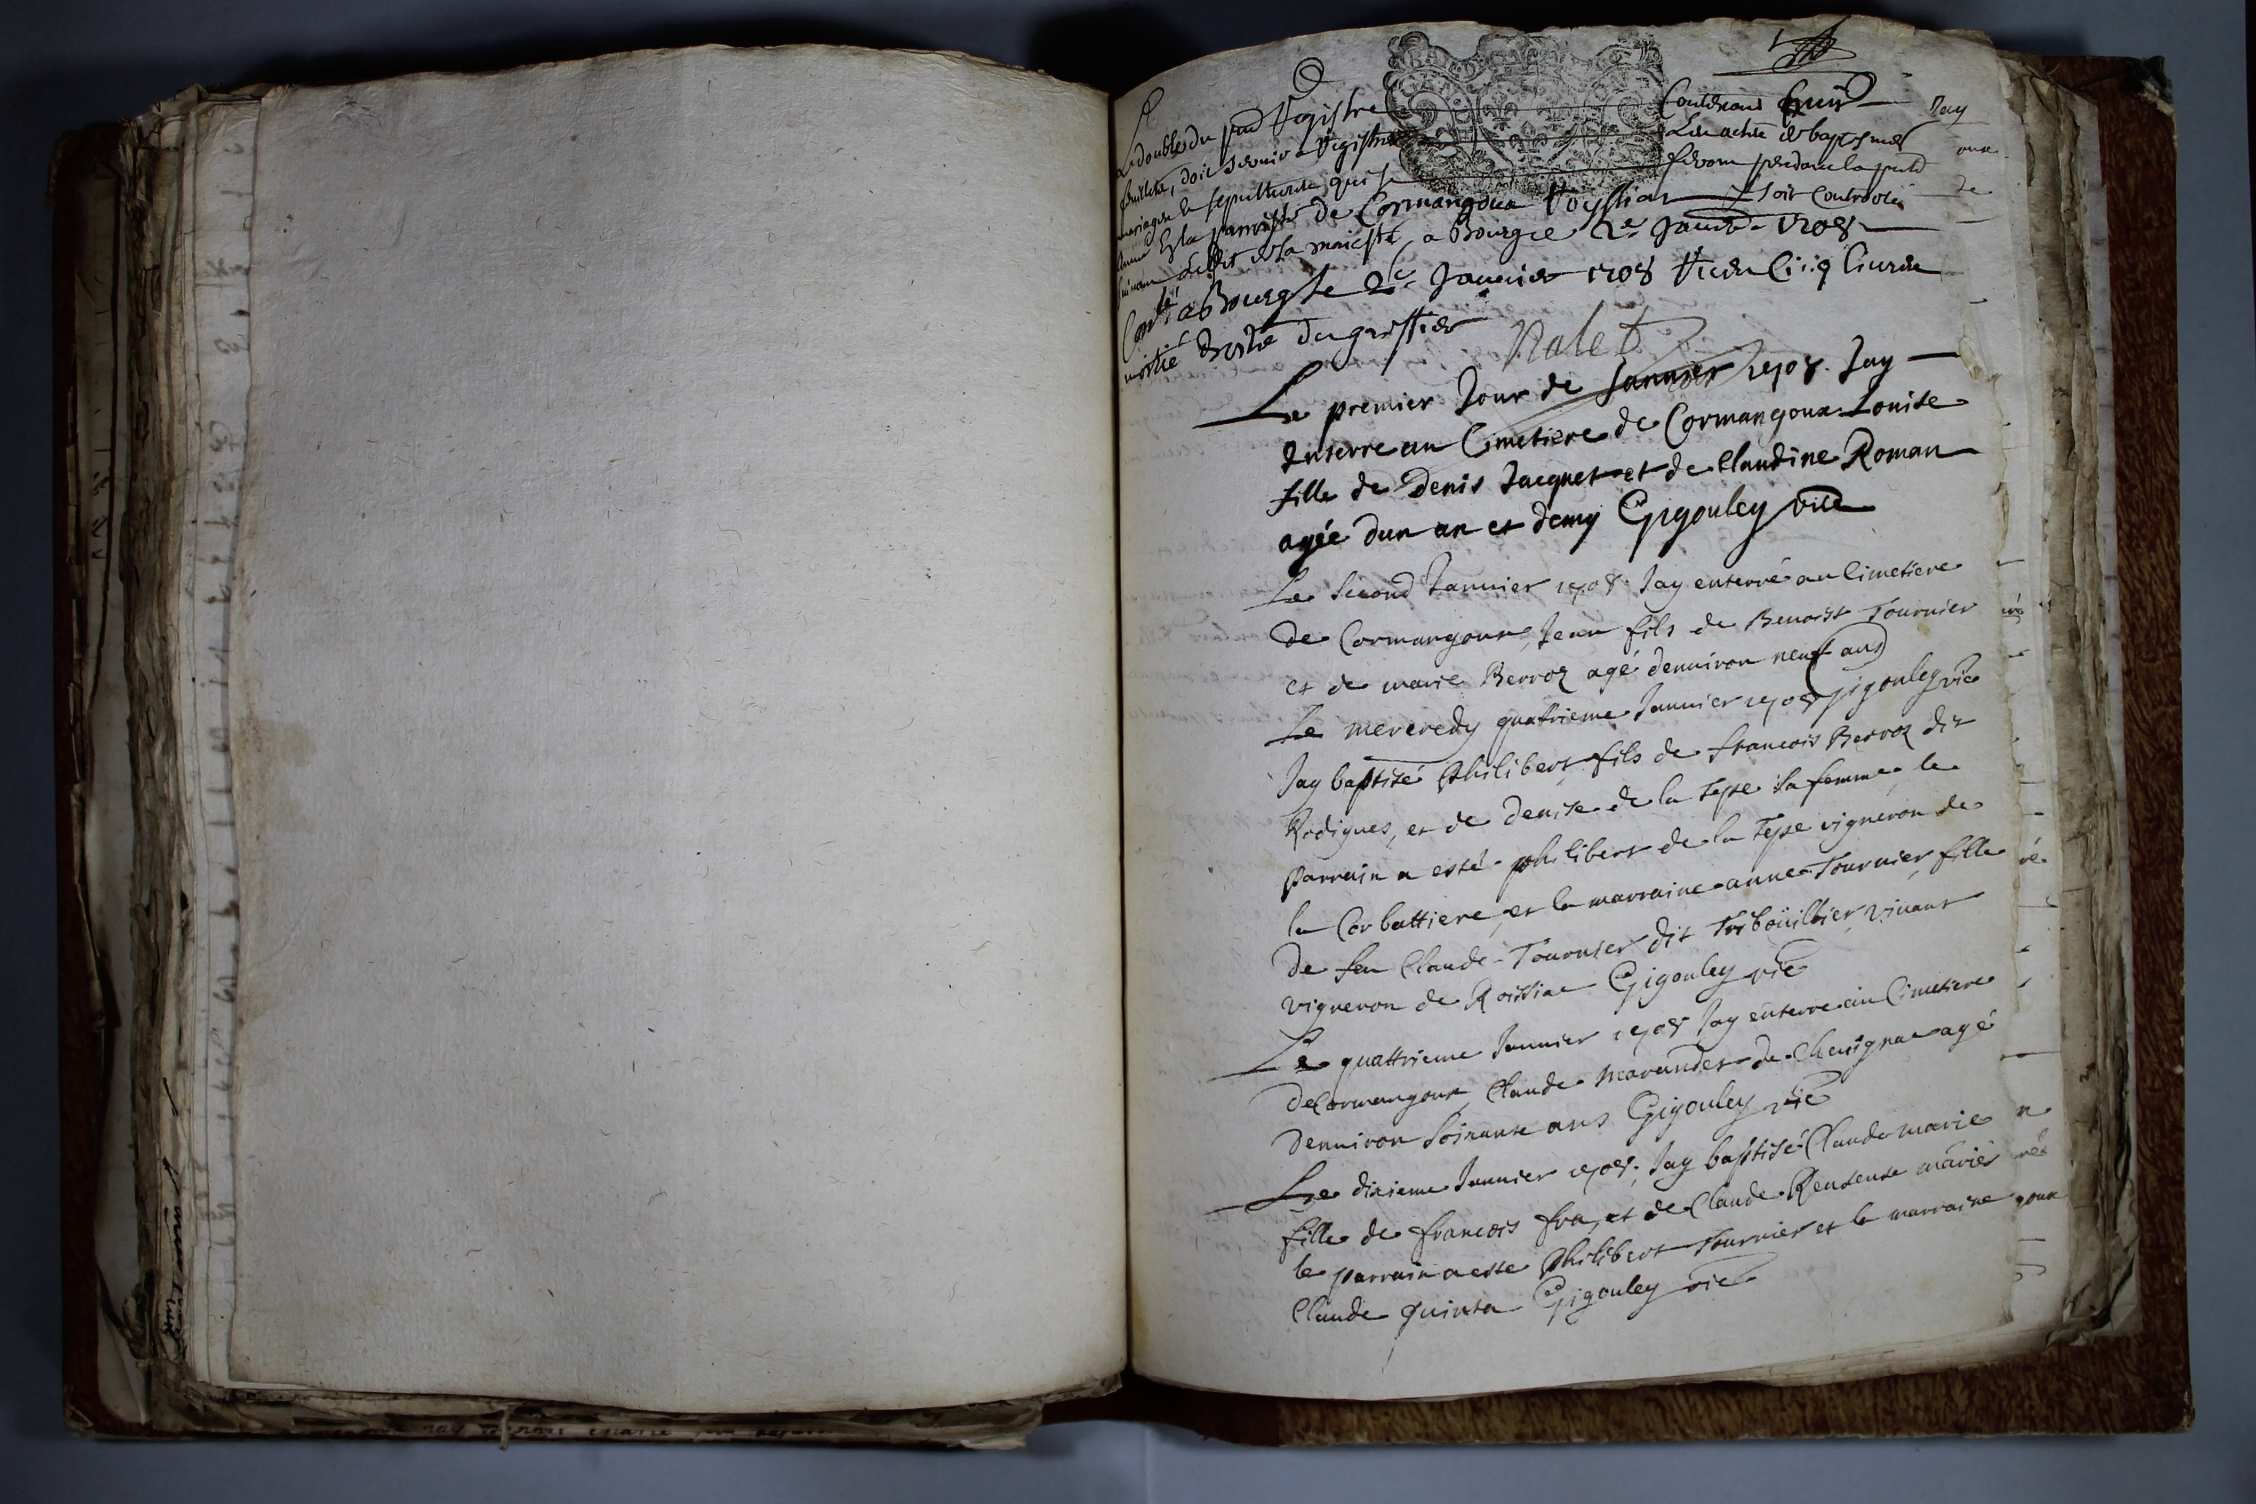 Le double du pnt Registre Contenant huit
feuillets, doit servir a Registrer Les actes de baptesmes
mariages & sepultures qui se feront pendant la pnte
année En la parroisse de Cormangoux Royssiat & soit Controolé
suivant Ledit de Sa maiesté, a Bourg ce 2e Janvr 1708
Conlé a Bourg le 2e Janvier 1708 Receu Cinq livres
moitié droits du greffier Nalet
Le premier Jour de Januier 1708. Jay
Enterre au Cimetiere de Cormangoux Louise
fille de Denis Jacquet et de Claudine Roman
agée dun an et demy Gigouley vic
Le second Januier 1708. Jay enterré au Cimetiere
de Cormangoux, Jean fils de Benoist Tournier
et de marie Berroz agé denuiron neuf ans
Gigouley vic
Le mercredy quatrieme Januier 1708
Jay baptisé Philibert fils de francois Berroz dit
Rodigues, et de Denise de la Teyse sa femme, le
parrain a esté philibert de la Teyse vigneron de
la Corbattiere, et la marraine anne Tournier fille
de feu Claude Tournier dit Tribouillier vivant
vigneron de Roissia Gigouley vic
Le quattrieme Januier 1708 Jay enterre au Cimetiere
de Cormangoux, Claude Marandet de Chevigna agé
denuiron soixante ans Gigouley vic
Le dixieme Januier 1708. Jay baptisé Claude marie
fille de francois fra, et de Claude mariés
le parrain a este Philibert Tournier et la marraine
Claude Quinta Gigouley vic